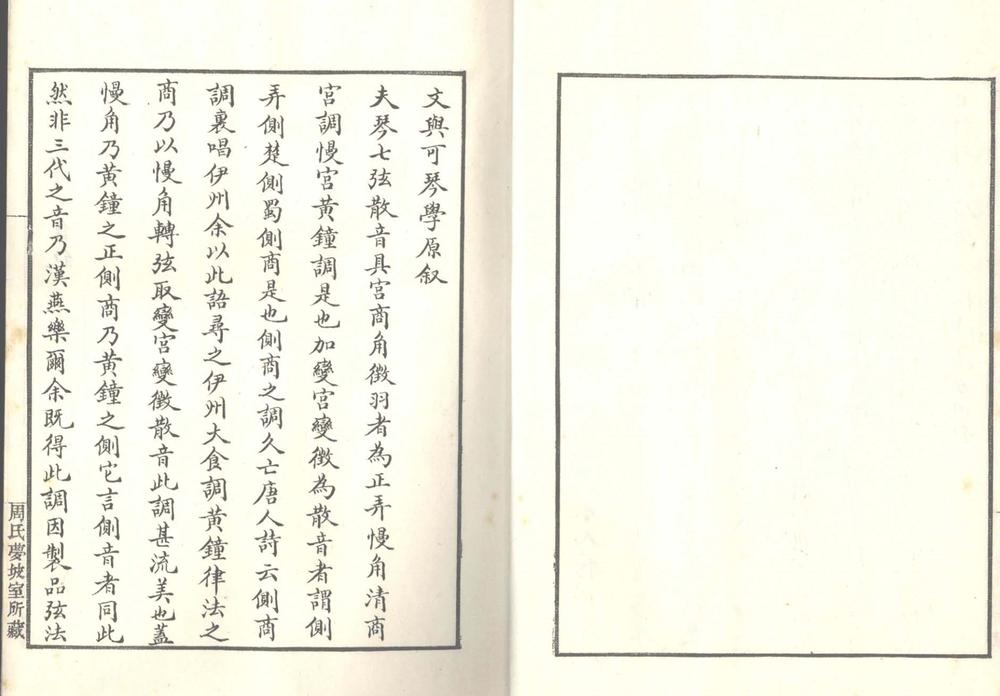 文與可琴學原叙
夫琴七弦散音具宮商角徵羽者為正弄慢角清商
宮調慢宮黃鐘調是也加變宮變徵為散音者謂側
弄側楚側蜀側商是也側商之調久亡唐人詩云側商
調裏唱伊州余以此語尋之伊州大食調黃鐘律法之
商乃以慢角轉弦取變宮變徵散音此調甚流美也蓋
慢角乃黃鐘之正側商乃黃鐘之側它言側音者同此
然非三代之音乃漢燕樂爾余既得此調因製品弦法
周氏夢坡室所藏